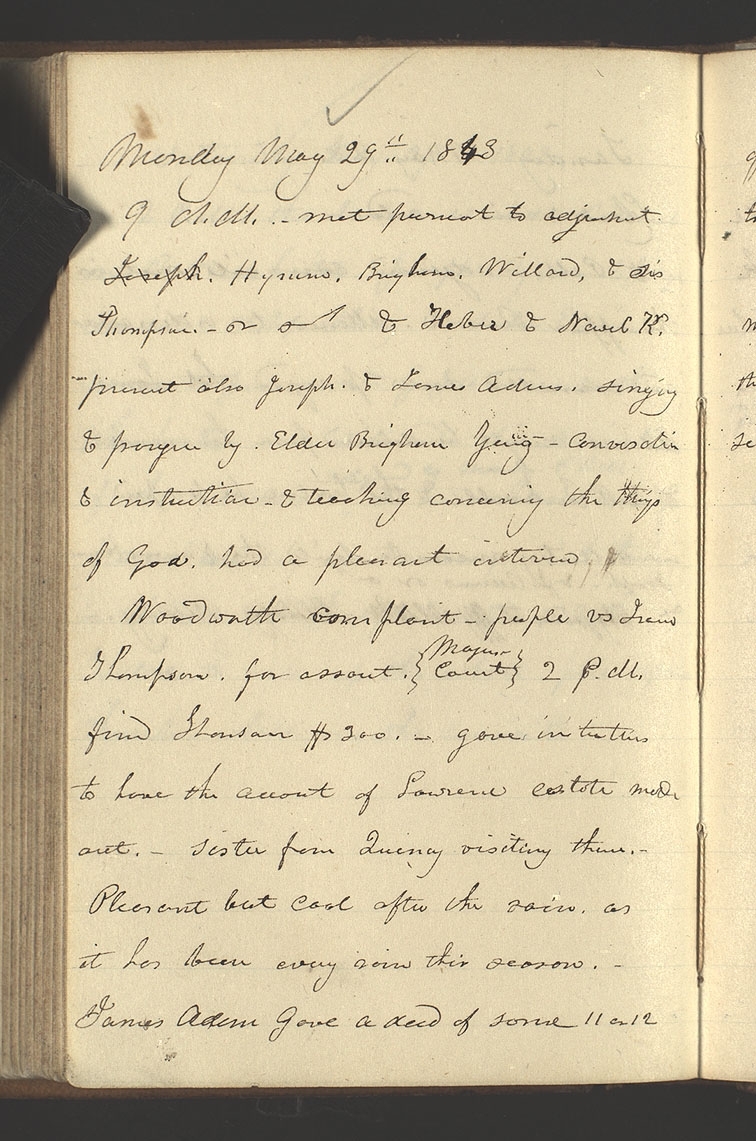 Monday May 29th. 1843
9 A.M. - met pursuant to adjunmt.
Joseph. Hyrum. Brigham. Willard, & Sis
Thompson. - or & Heber & Newel K.
present also Joseph. & James Adams. singing
& prayer by. Elder Brigham Yong - Conversation
& instruction - & teaching concerning the things
of God. had a pleasant interview.
Woodworth complaint - people vs
Thompson. for assaut. {Mayors Court} 2 P.M.
find Thomson $300. - gave instructions
to have the account of Lawrence estate made
out. - Sister from Quincy visiting them. -
Pleasant but cool after the rain. as
it has been every rain this season. -
James Adams Gave a deed of some 11 or 12